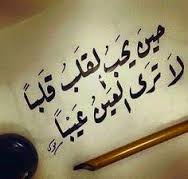 حين يحب القلب قلباً
لا ترى العين عيباً